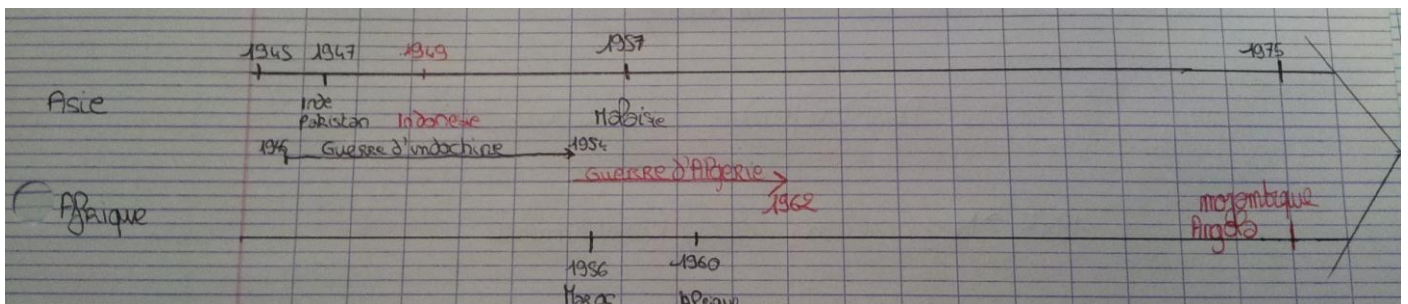 1945 1947 1949 1957 1975
Asie
Inde
Pakistan Indonesie Malaisie
1946 Guerre d'indochine 1954
Guerre d'Algerie
1962
Afrique
mozambique
Angola
1956 1960
Maroc